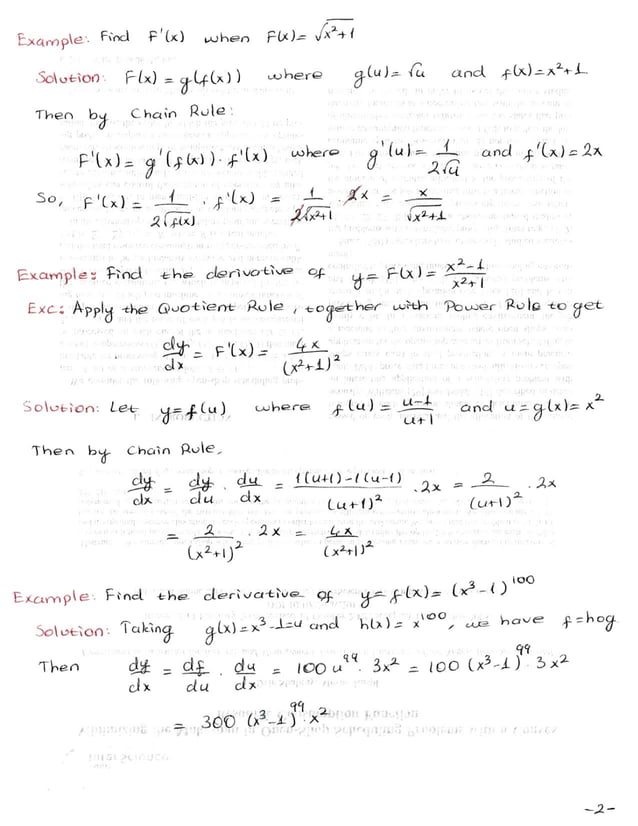 Example: Find F'(x) when F(x) = √(x²+1)
Solution: F(x) = g(f(x)) where g(u) = √u and f(x) = x²+1
Then by Chain Rule:
F'(x) = g'(f(x)) · f'(x) where g'(u) = 1/(2√u) and f'(x) = 2x
So, F'(x) = 1/(2√f(x)) · f'(x) = 1/(2√(x²+1)) · 2x = x/√(x²+1)
Example: Find the derivative of y = F(x) = (x²-1)/(x²+1)
Exc: Apply the Quotient Rule, together with Power Rule to get
dy/dx = F'(x) = 4x/(x²+1)²
Solution: Let y = f(u) where f(u) = (u-1)/(u+1) and u = g(x) = x²
Then by Chain Rule,
dy/dx = dy/du · du/dx = (1(u+1)-1(u-1))/(u+1)² · 2x = 2/(u+1)² · 2x
= 2/(x²+1)² · 2x = 4x/(x²+1)²
Example: Find the derivative of y = f(x) = (x³-1)¹⁰⁰
Solution: Taking g(x) = x³-1 = u and h(x) = x¹⁰⁰, we have f = hog
Then dy/dx = df/du · du/dx = 100 u⁹⁹ · 3x² = 100 (x³-1)⁹⁹ · 3x²
= 300 (x³-1)⁹⁹ · x²
-2-